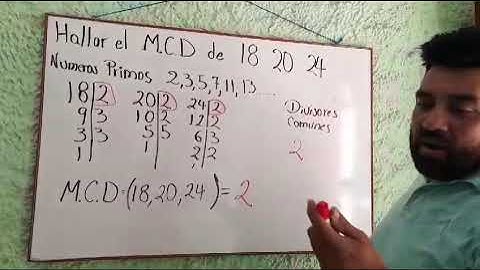 Hallar el M.C.D de 18 20 24
Numeros Primos 2,3,5,7,11,13.....
18 2 20 2 24 2 Divisores
9 3 10 2 12 2 Comunes
3 3 5 5 6 3 2
1 1 2 2
M.C.D=(18,20,24)=2